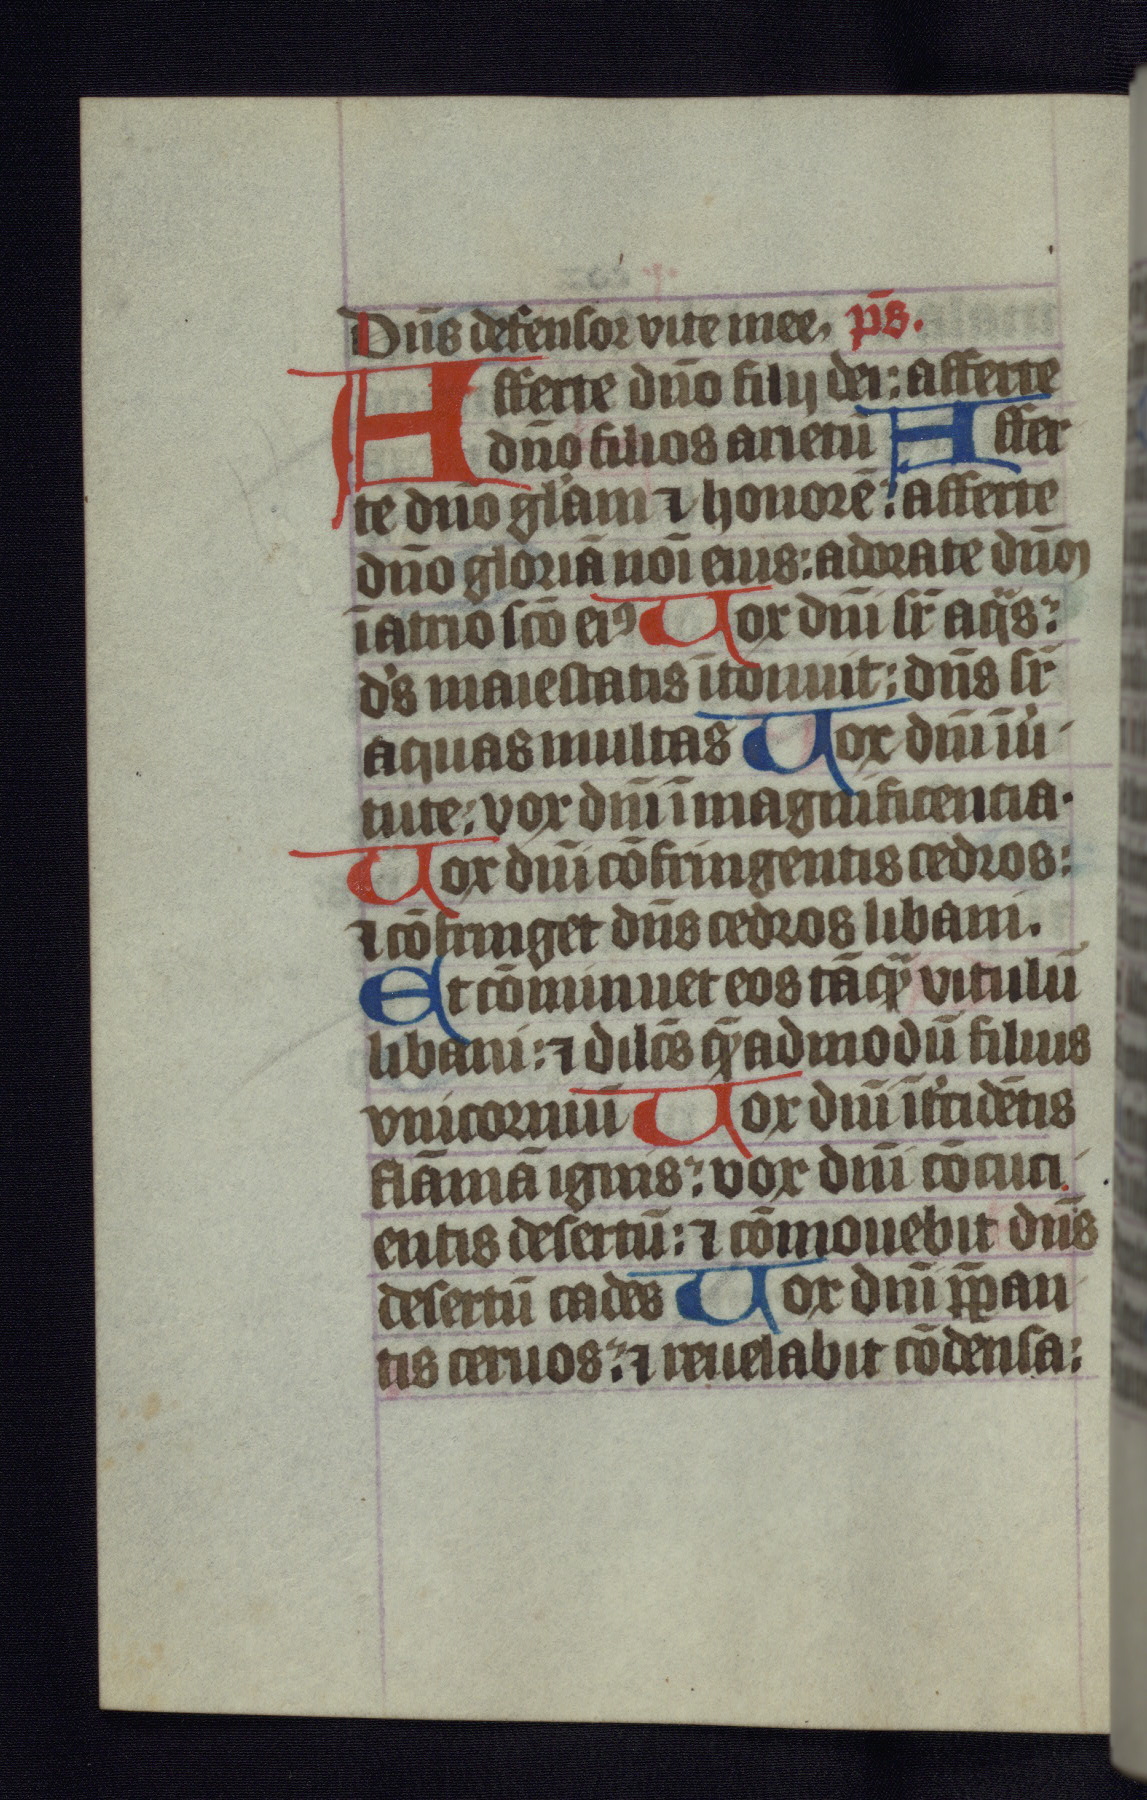 Dn̄s defensor vite mee, p̄s.
Afferte dn̄o filij dei: afferte
dn̄o filios arietū Affer
te dn̄o gl'am ⁊ honorē: afferte
dn̄o gloriā noī eius: adorate dn̄m
ī atrio sc̄o eiꝰ Uox dn̄i sr̄ aq̄s:
d's maiestatis ītonuit: dn̄s sr̄
aquas multas Uox dn̄i ī u'
tute: vox dn̄i ī magnificentia.
Uox dn̄i cōfringentis cedros:
⁊ cōfringet dn̄s cedros libani.
Et cōminuet eos tāqꝫ vitulū
libani: ⁊ dilc̄s q̄admodū filius
vnicorniū Uox dn̄i īt'cidētis
flāmā ignis: vox dn̄i cōcuci
entis desertū: ⁊ cōmouebit dn̄s
desertū cades Uox dn̄i p̄pan
tis ceruos: ⁊ reuelabit cōdensa: